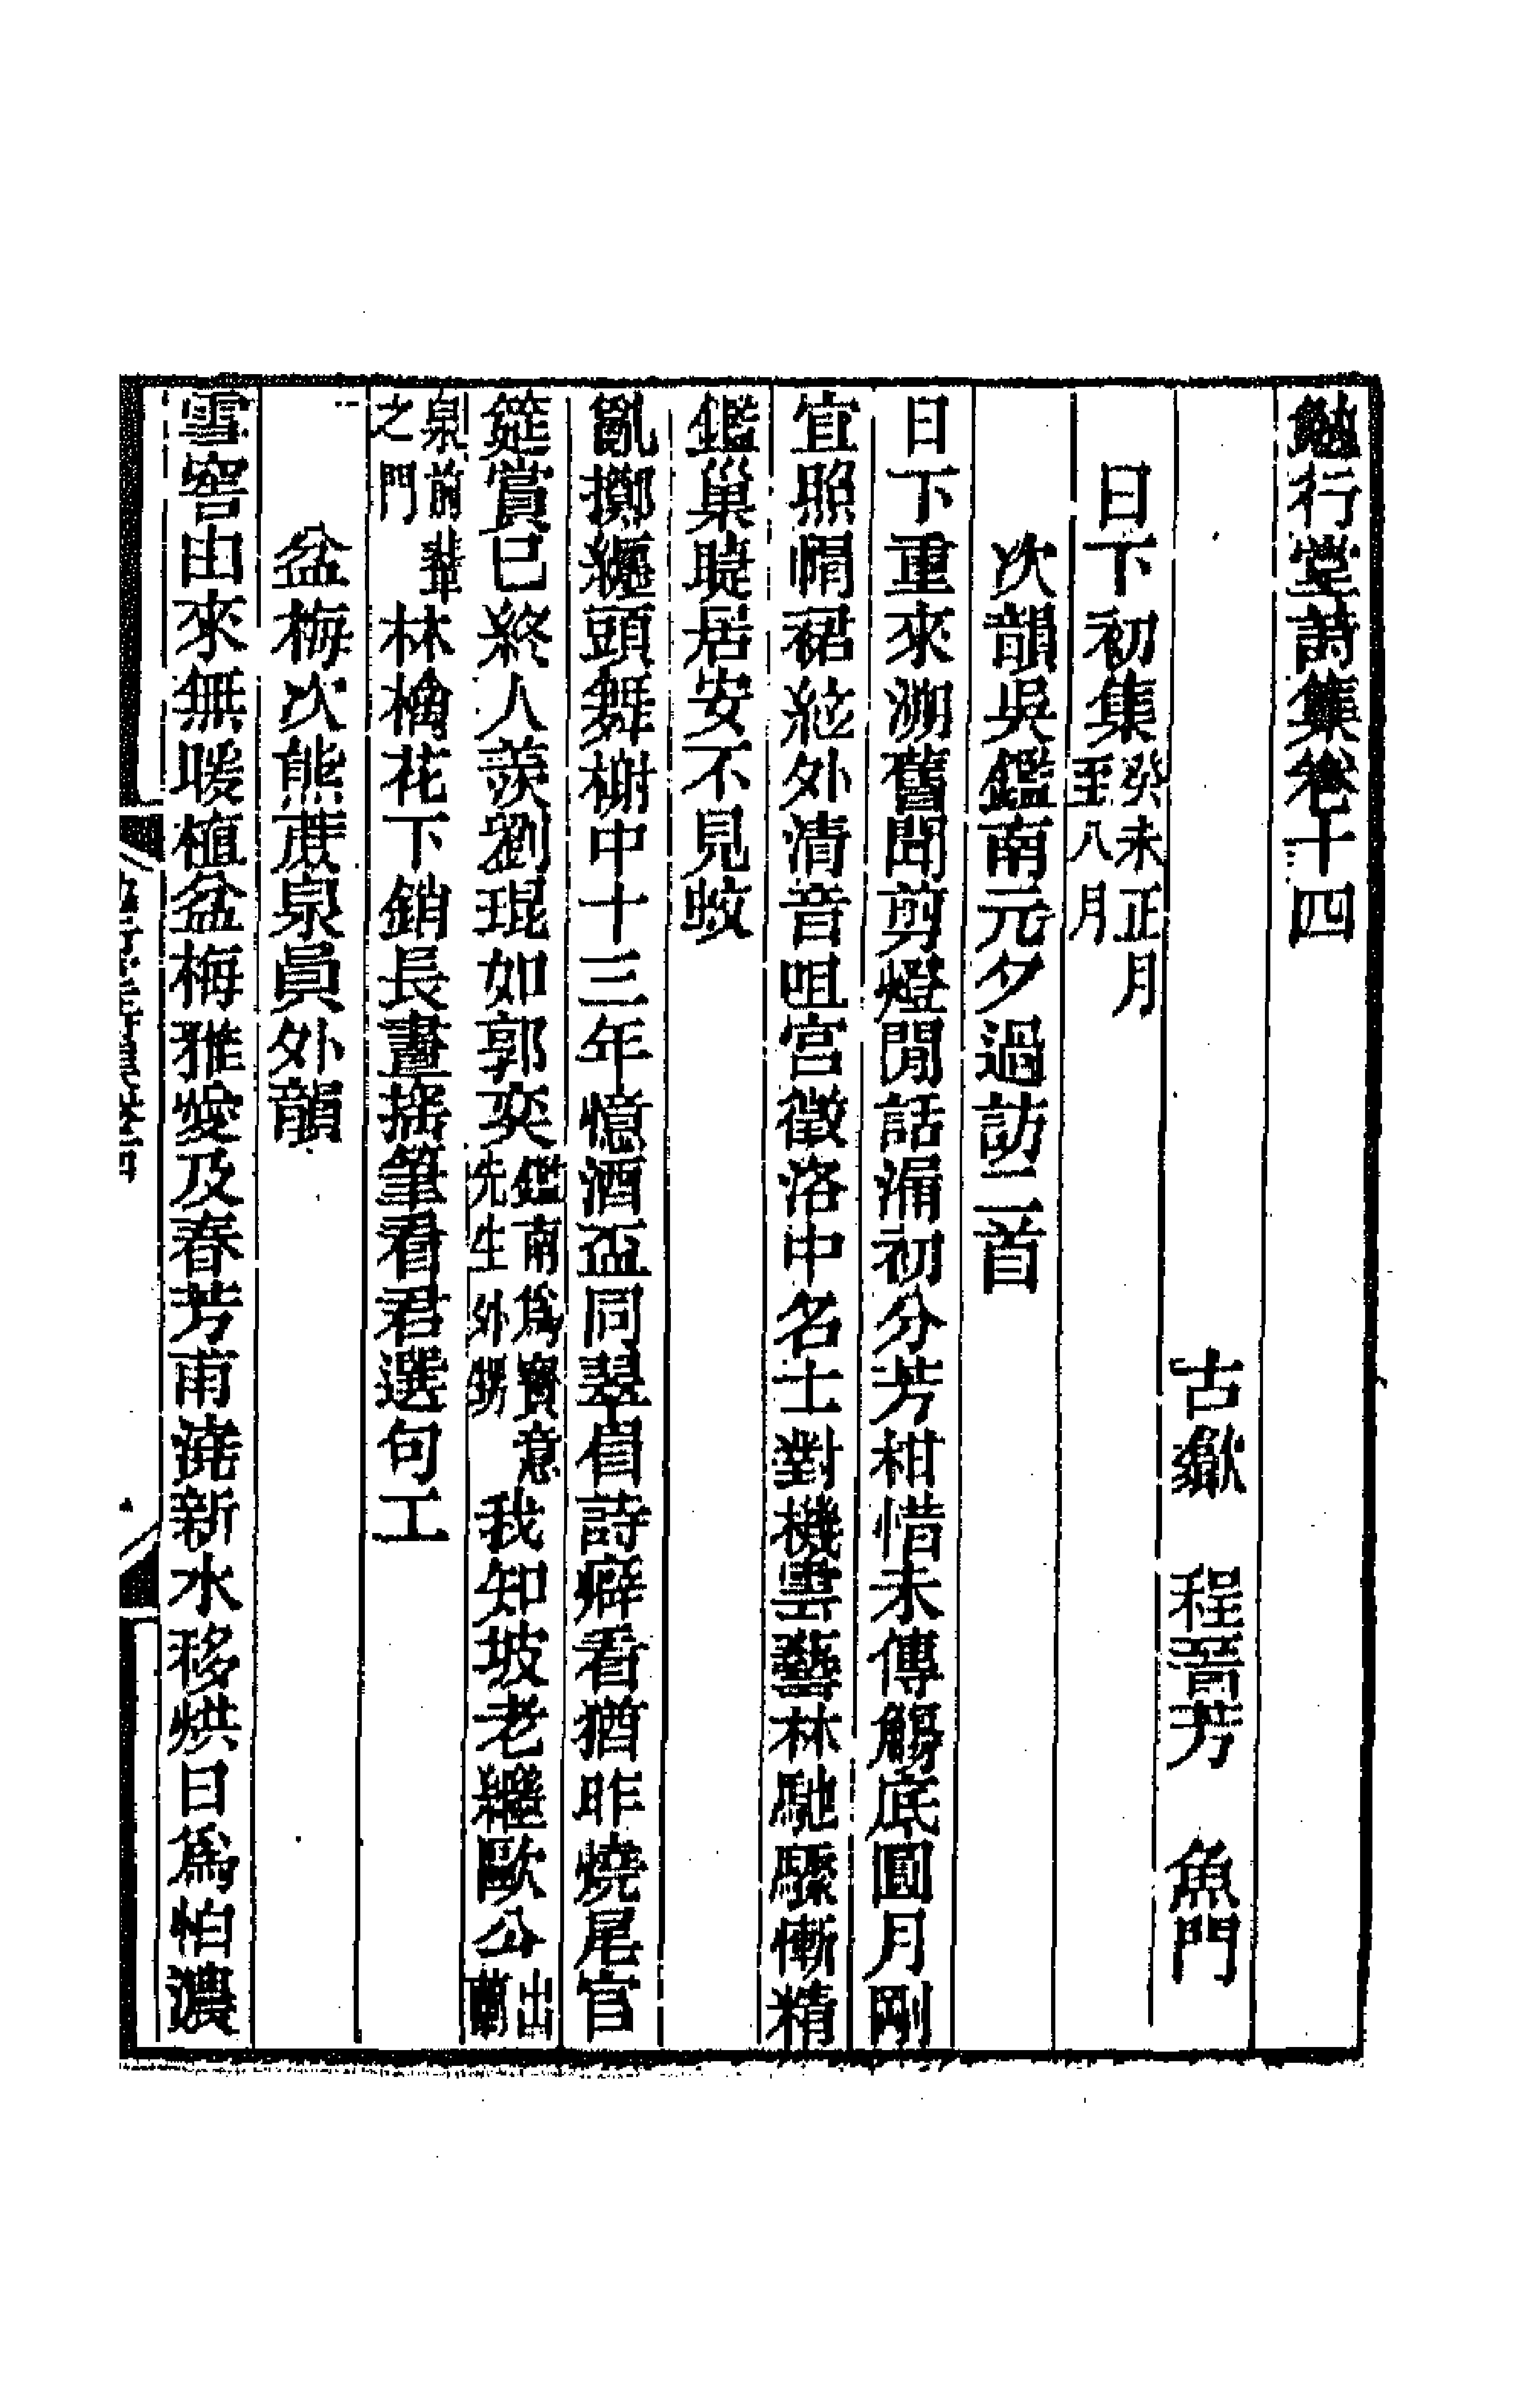 勉行堂詩集卷十四
古歙　程晉芳　魚門
日下初集癸未正月至八月
次韻吳鑑南元夕過訪二首
日下重來溯舊聞剪燈閒話漏初分芳柑惜未傳觴底圓月剛
宜照幘裙絃外清音咀宮徵洛中名士對機雲藝林馳驟慚精
鑑巢睫居安不見蚊
亂擲纏頭舞榭中十三年憶酒盃同翠眉詩癖看猶昨燒尾官
筵賞已終人羨劉琨如郭奕鑑南爲寶意先生外甥我知坡老繼歐公出蘭
泉前輩之門林檎花下銷長晝搖筆看君選句工
盆梅次熊蔗泉員外韻
雪窖由來無暖植盆梅雅愛及春芳甫澆新水移烘日爲怕濃